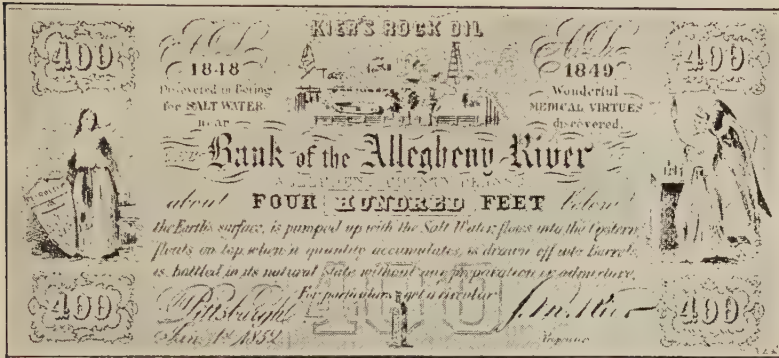 400 KIER'S ROCK OIL 400
A.D. A.D.
1848 1849
Discovered in Boring Wonderful
for SALT WATER MEDICAL VIRTUES
near discovered
Bank of the Allegheny River
ALLEGHENY COUNTY PENNA.
about FOUR HUNDRED FEET below
the Earth's surface, is pumped up with the Salt Water, flows into the Cistern,
floats on top, when a quantity accumulates, is drawn off into Barrels,
is bottled in its natural state without any preparation or admixture.
For particulars get a circular
400 400 400
Pittsburgh
Jan. 1st 1852 Proprietor